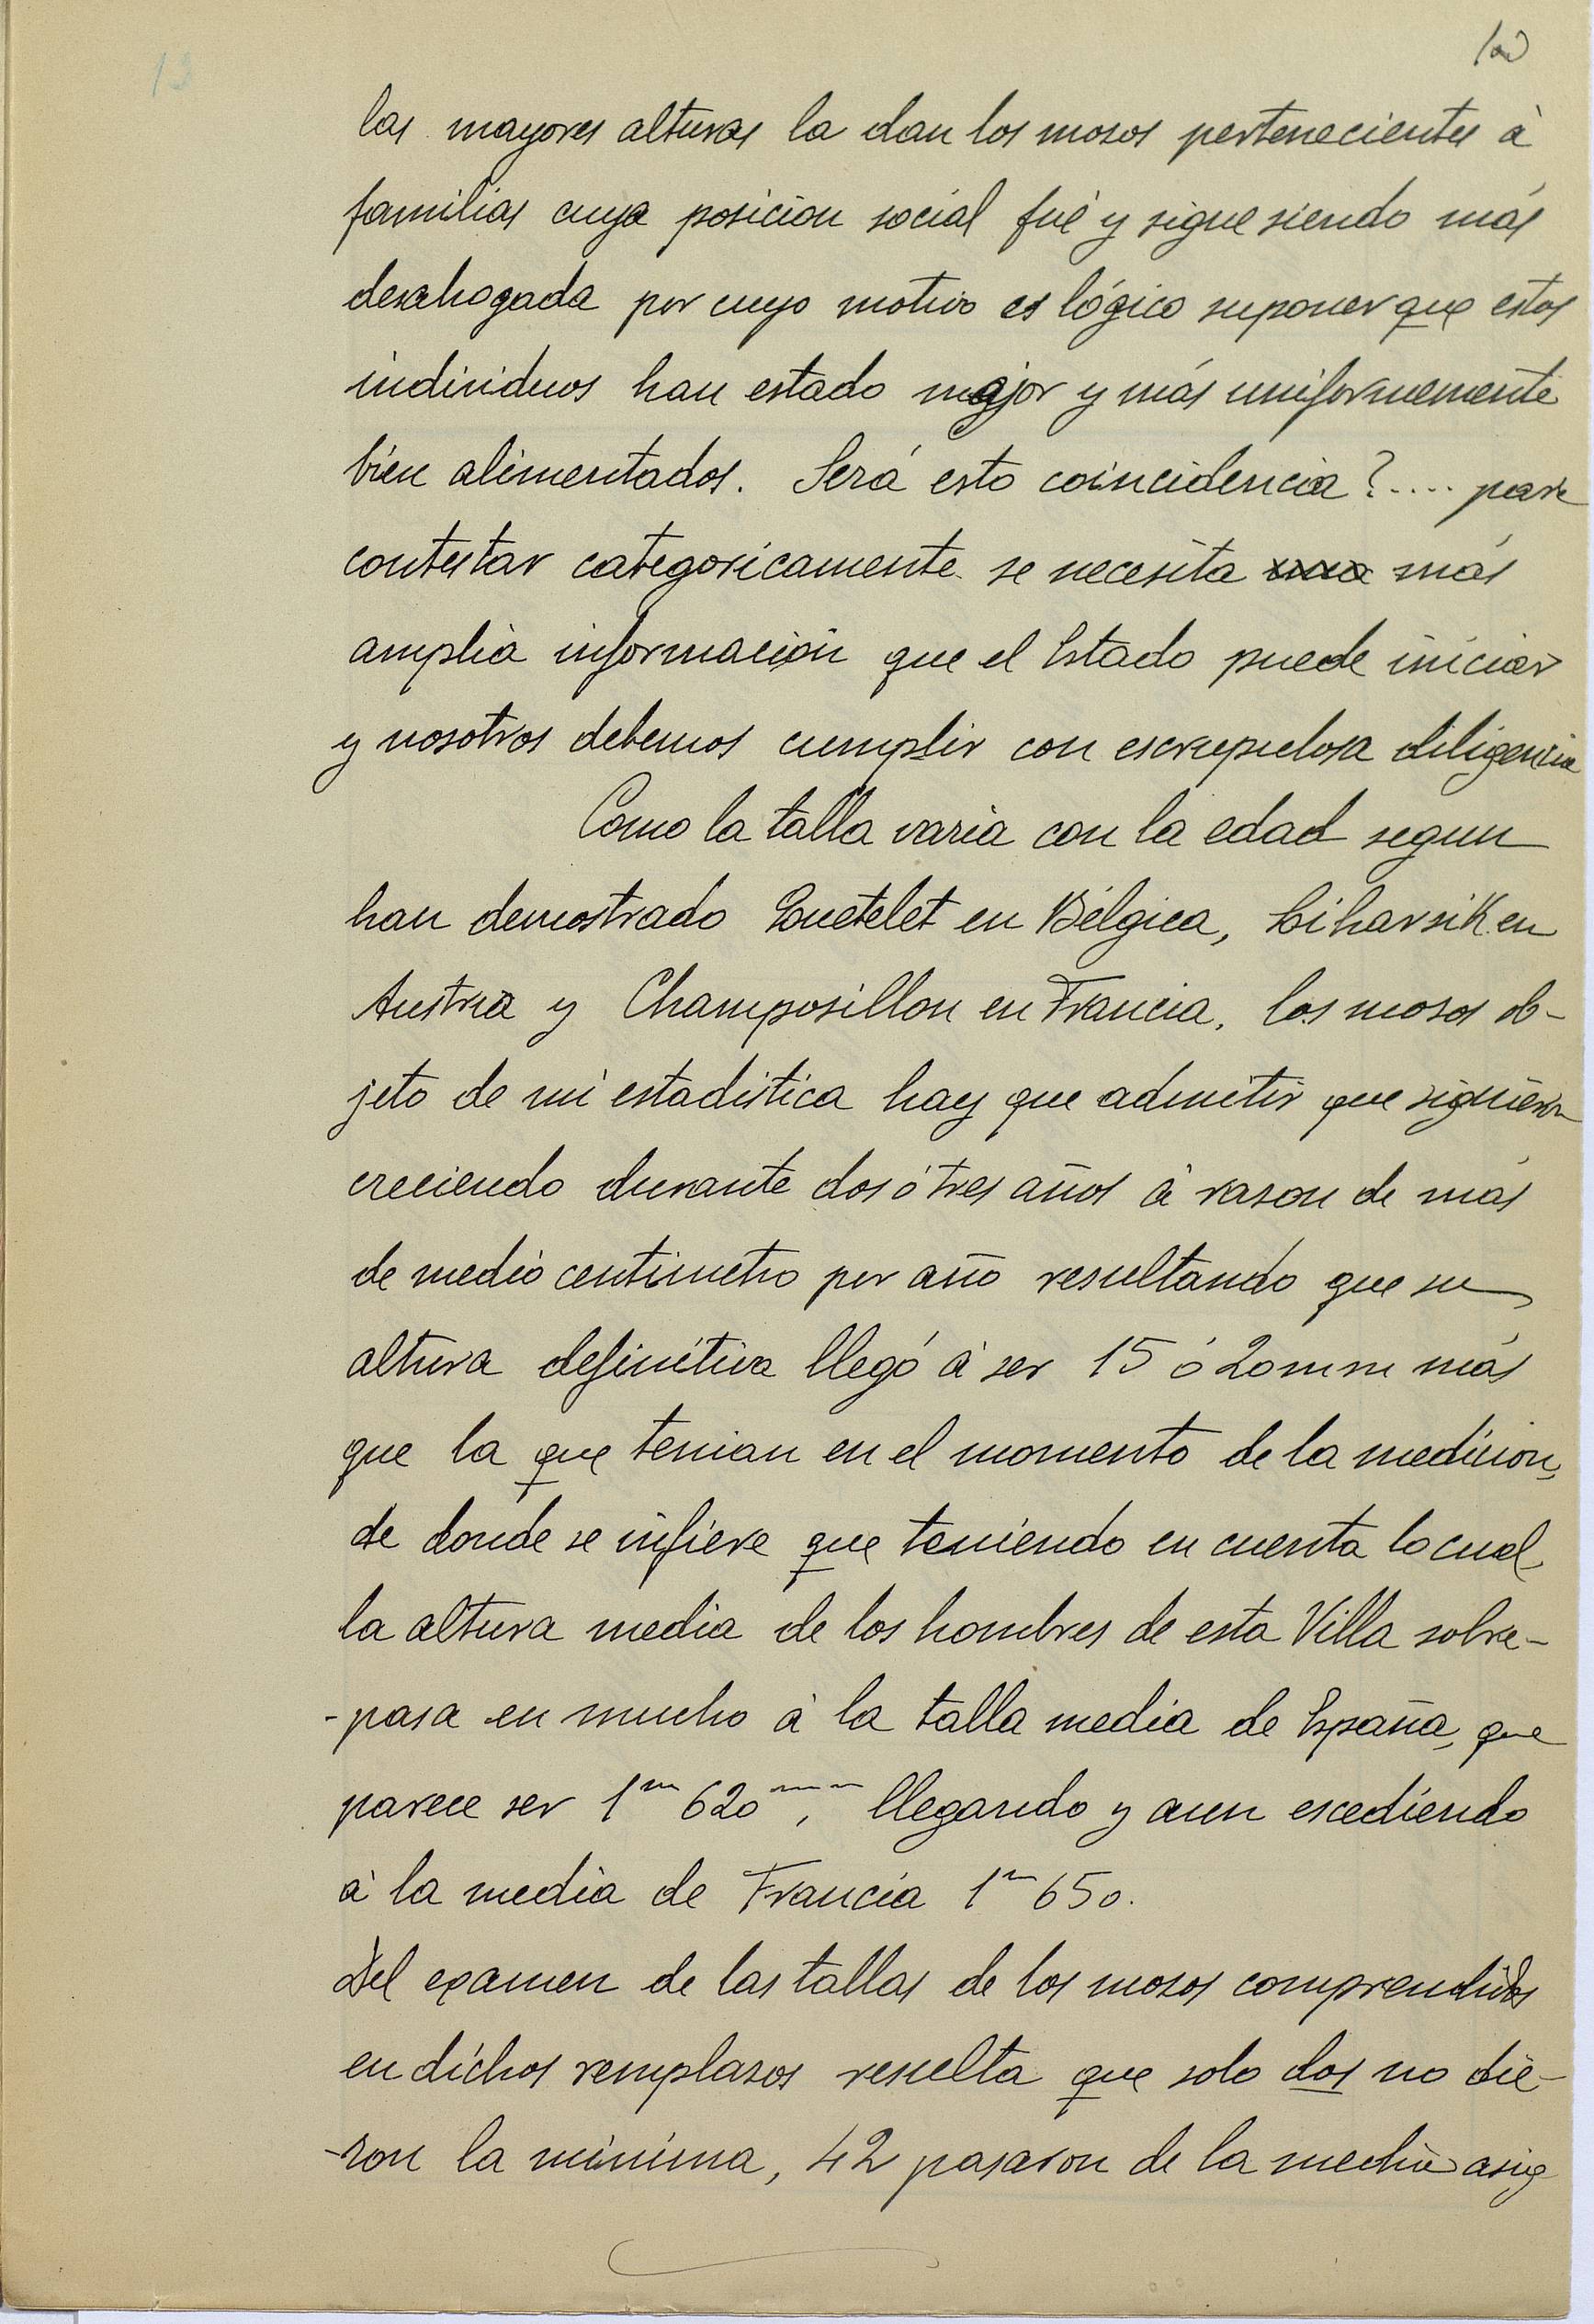 13
las mayores alturas la dan los mosos pertenecientes à
familias cuya posicion social fué y sigue siendo más
desahogada por cuyo motivo es lógico suponer que estos
individuos han estado mejor y más uniformemente
bien alimentados. Será esto coincidencia?.... para
contestar categoricamente se necesita más
amplia informacion que el Estado puede iniciar
y nosotros debemos cumplir con escrupulosa diligencia
Como la talla varia con la edad segun
han demostrado Quetelet en Bélgica, Liharsik en
Austria y Champosillon en Francia, los mosos ob-
jeto de mi estadistica hay que admitir que siguieron
creciendo durante dos ó tres años à rason de más
de medio centimetro por año resultando que su
altura definitiva llegó à ser 15 ó 20 mm más
que la que tenian en el momento de la medicion,
de donde se infiere que teniendo en cuenta lo cual,
la altura media de los hombres de esta Villa sobre-
-pasa en mucho à la talla media de España, que
parece ser 1m 620mm, llegando y aun escediendo
à la media de Francia 1m 650.
Del examen de las tallas de los mosos comprendidos
en dichos remplasos resulta que solo dos no die-
-ron la minima, 42 pasaron de la media asig